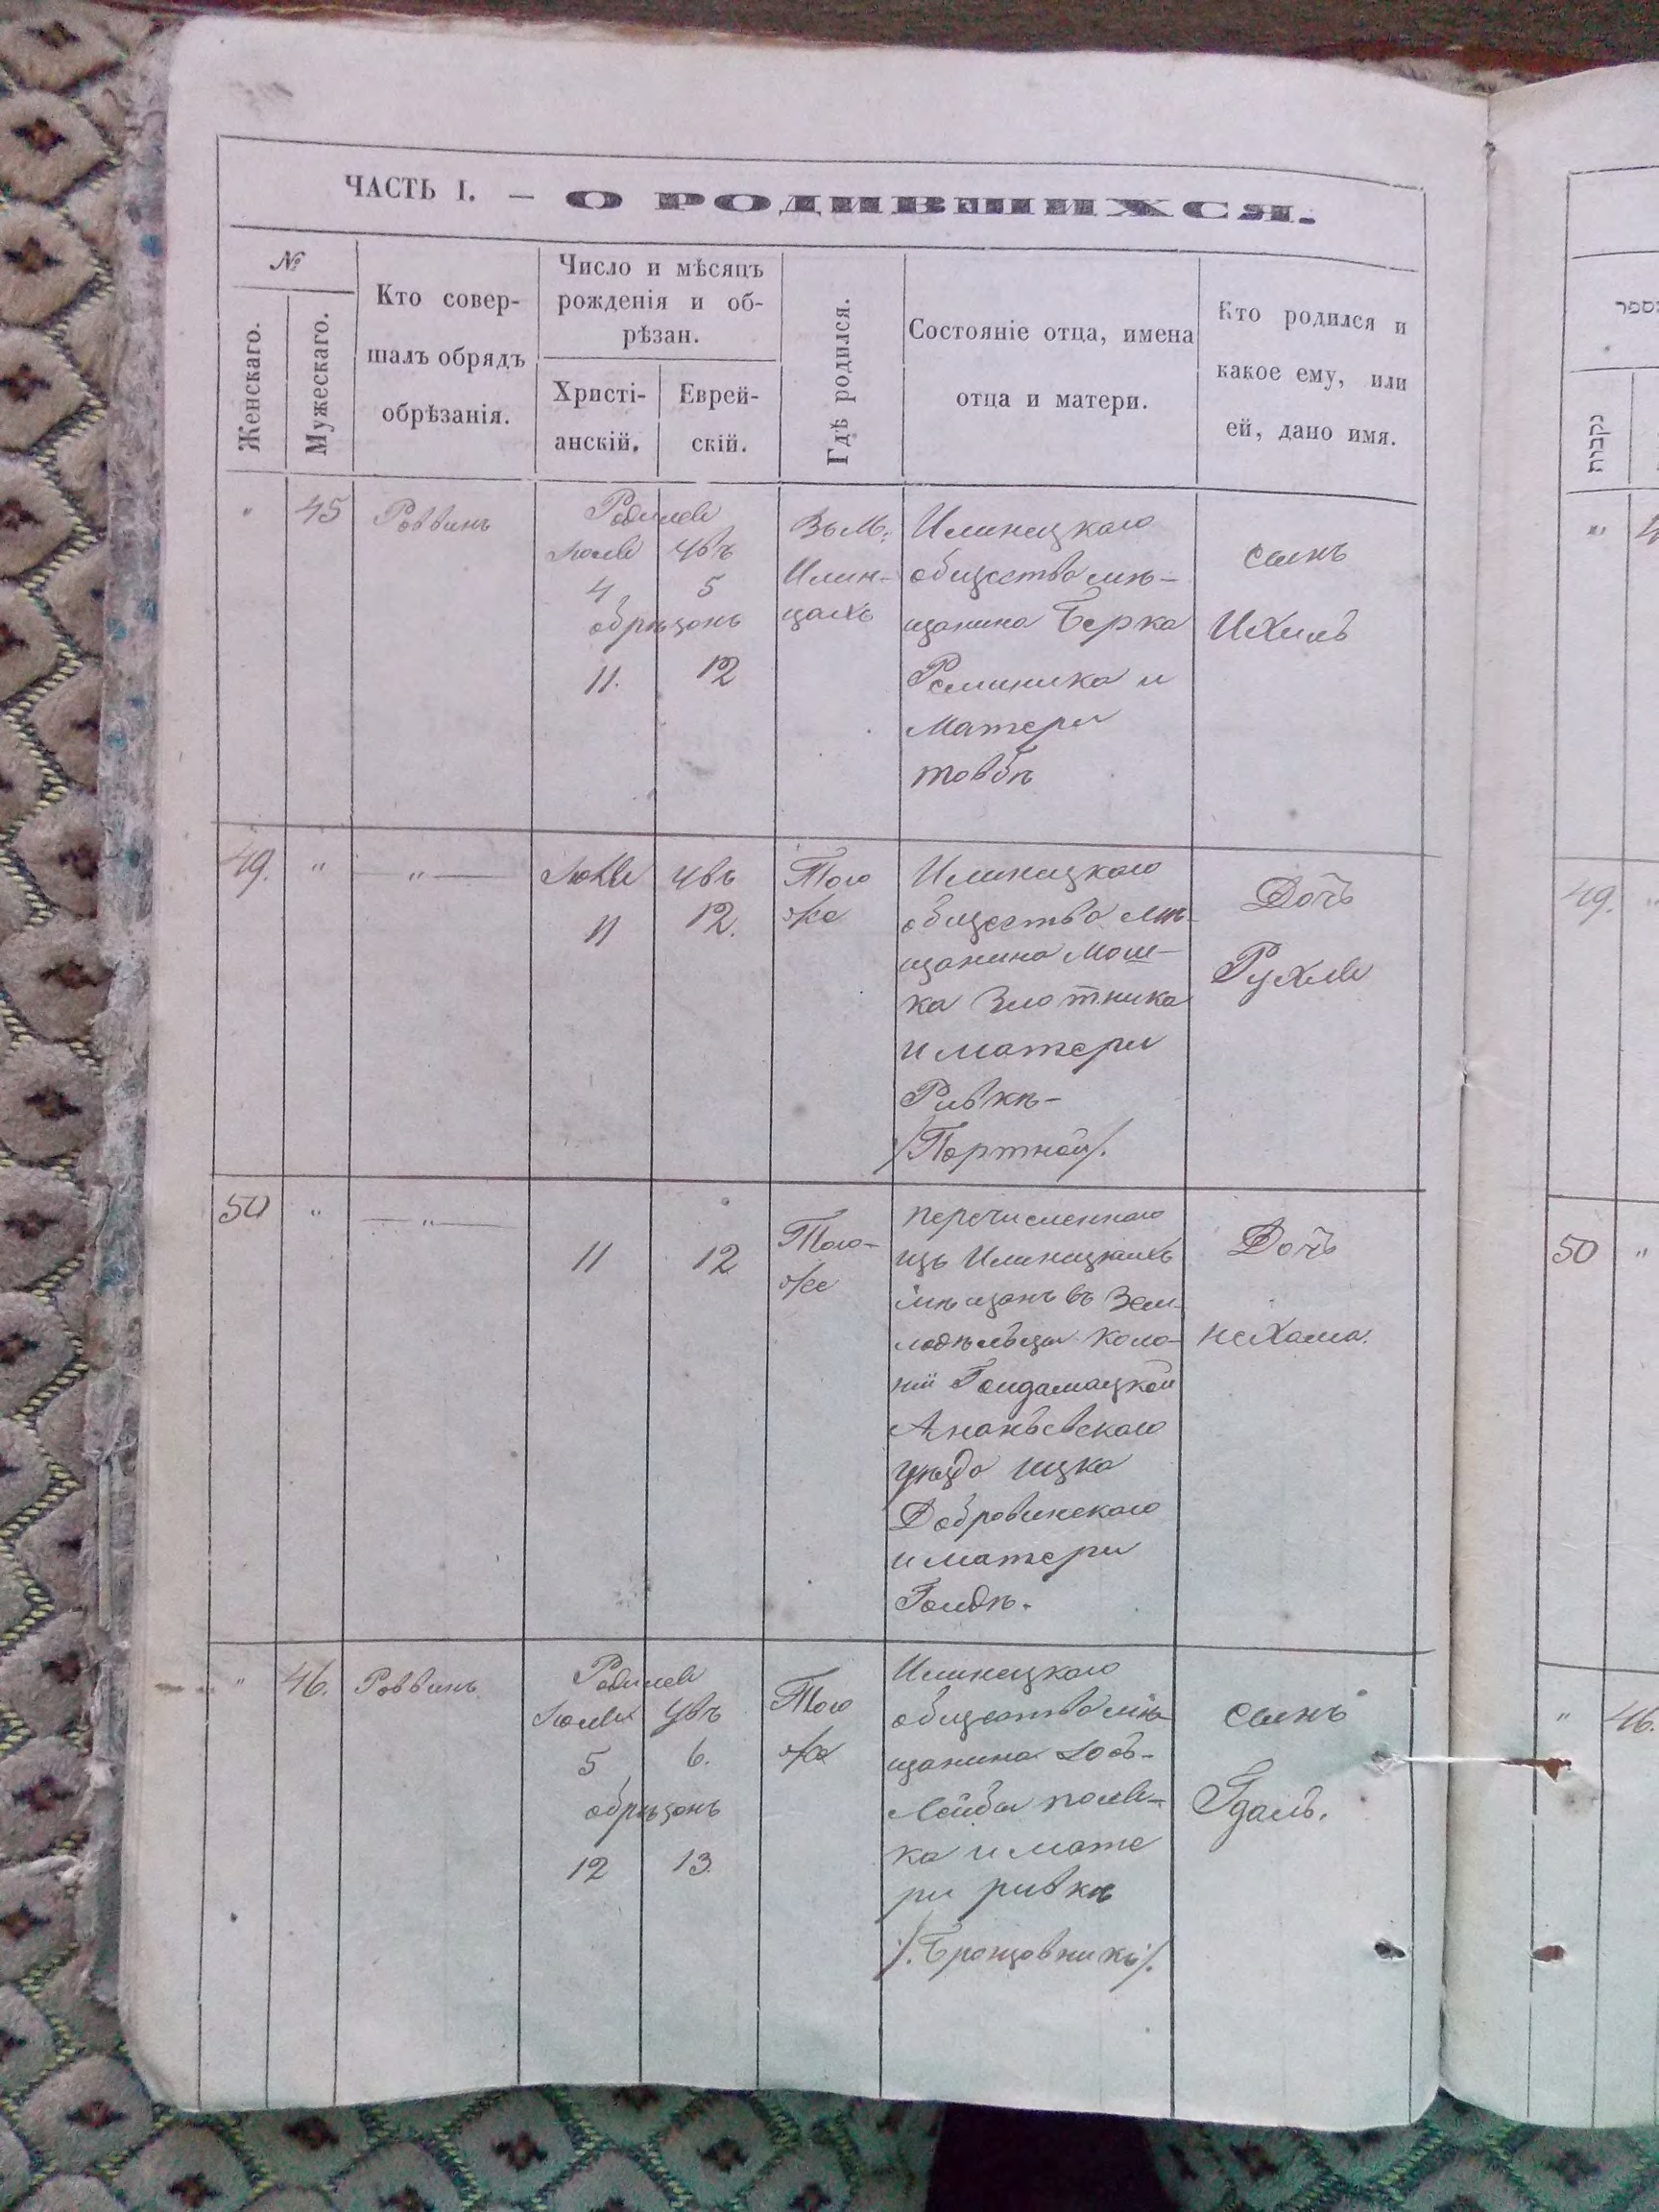 ЧАСТЬ I. — О РОДИВШИХСЯ.
№
Женскаго.
Мужескаго.
Кто совер-
шалъ обрядъ
обрѣзанія.
Число и мѣсяцъ
рожденія и об-
рѣзан.
Христі-
анскій.
Еврей-
скій.
Гдѣ родился.
Состояніе отца, имена
отца и матери.
Кто родился и
какое ему, или
ей, дано имя.
" 45 Раввинъ
Родился
Іюля
4 5
обрѣзанъ
11. 12
Въ М.
Илин-
цахъ
Илинецкаго
общества мѣ-
щанина Берка
и
Матери
товбѣ
сынъ
Ихиль
49. " — " —
Іюля
11 12.
Того
же
Илинецкаго
общества мѣ-
щанина Мош-
ка Злотника
и матери
Ривкѣ-
/Портной/.
Дочь
Рухля
50 " — " —
11 12
Того-
же
перечисленнаго
изъ Илинецкихъ
мѣщанъ въ Зем-
ледѣльцы коло-
ніи Гойдамацкой
Ананьевскаго
уѣзда Ицка
Добровинскаго
и матери
Голдѣ.
Дочь
Нехама.
" 46. Раввинъ
Родился
Іюля
5 6.
обрѣзанъ
12 13.
Того
же
Илинецкаго
общества мѣ-
щанина
Лейбы поля-
ка и мате
ри ривкѣ
/.Бронзовникъ/.
сынъ
Гдаль.
נקבות
"
49.
50 "
" 46.